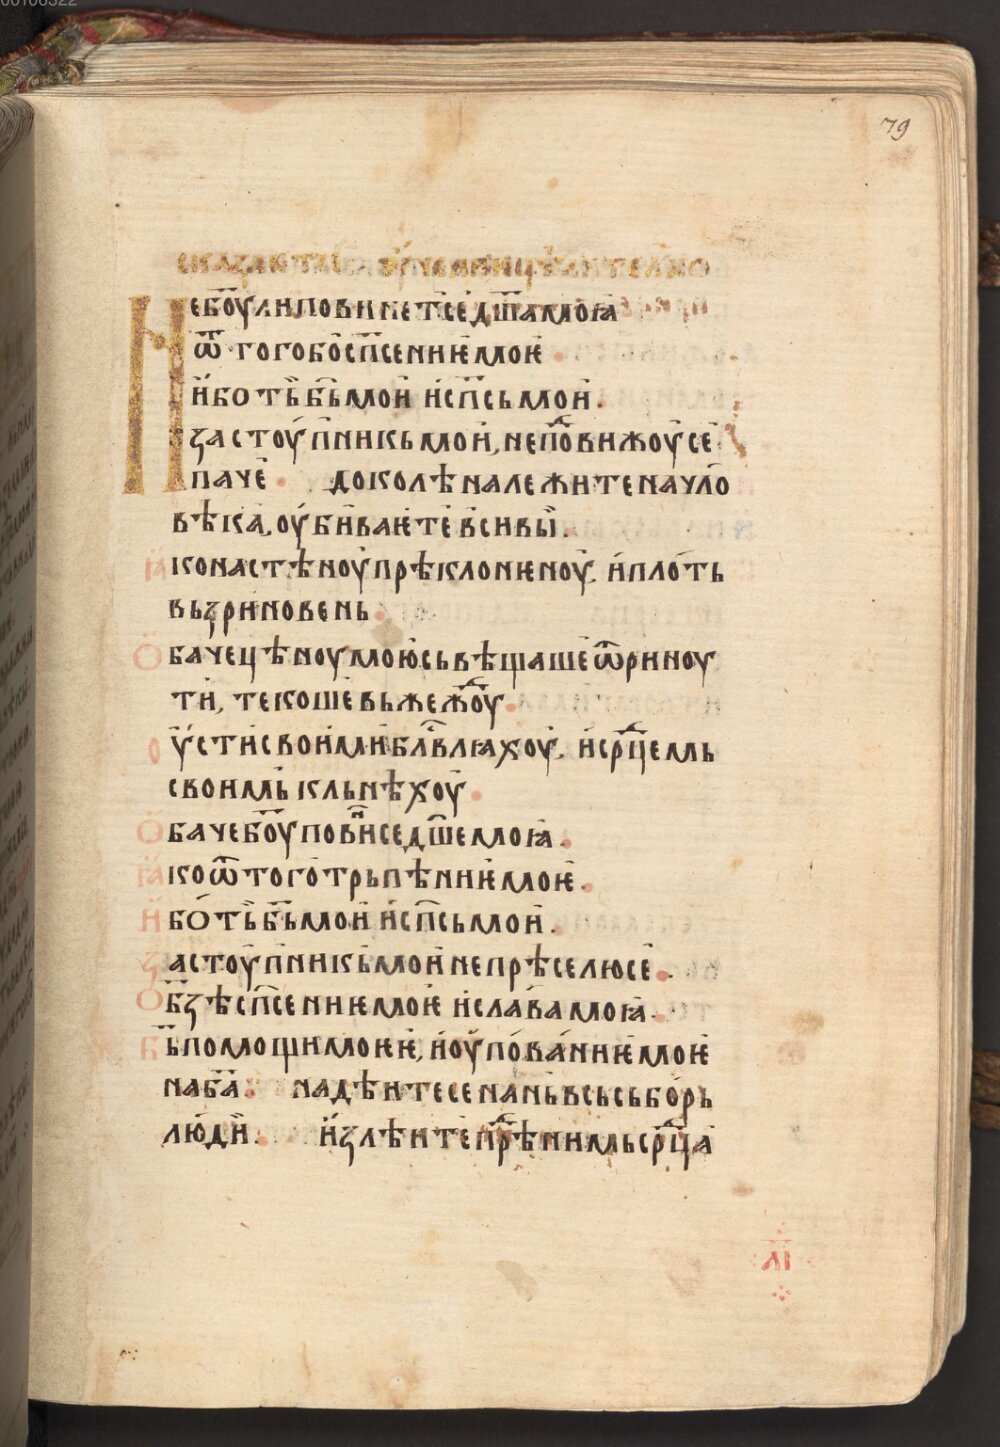 79
Не б҃оу ли повинетсе дш҃а моꙗ
ѿ того бо сп҃сениѥ моѥ
ибо тъ б҃ь мои и сп҃сь мои.
застоупникь мои, не повижоу се
паче доколѣ належите на чло
вѣка, оубиваѥте вси вы.
ꙗко на стѣноу прѣклоньноу. и плоть
вьзриновень
Ѻбаче цѣноу мою сьвѣщаше ѿриноу
ти, текоше вь жежⷣоу
оусти своими блⷭ҇влꙗхоу, и срⷣцемь
своимь кльнѣхоу
Ѻбаче б҃оу повинисе дш҃е моꙗ.
ꙗко ѿ того трьпѣниѥ моѥ.
Ибо тъ б҃ь мои и сп҃сь мои.
Застоупникь мои не прѣселюсе.
Ѻ б҃зѣ сп҃сениѥ моѥ и слава моꙗ.
Б҃ь помощи моѥѥ, и оупованиѥ моѥ
на б҃а. надѣитесе нань вьсь сьборь
людіи. излѣите прⷣѣ нимь срⷣца
аі